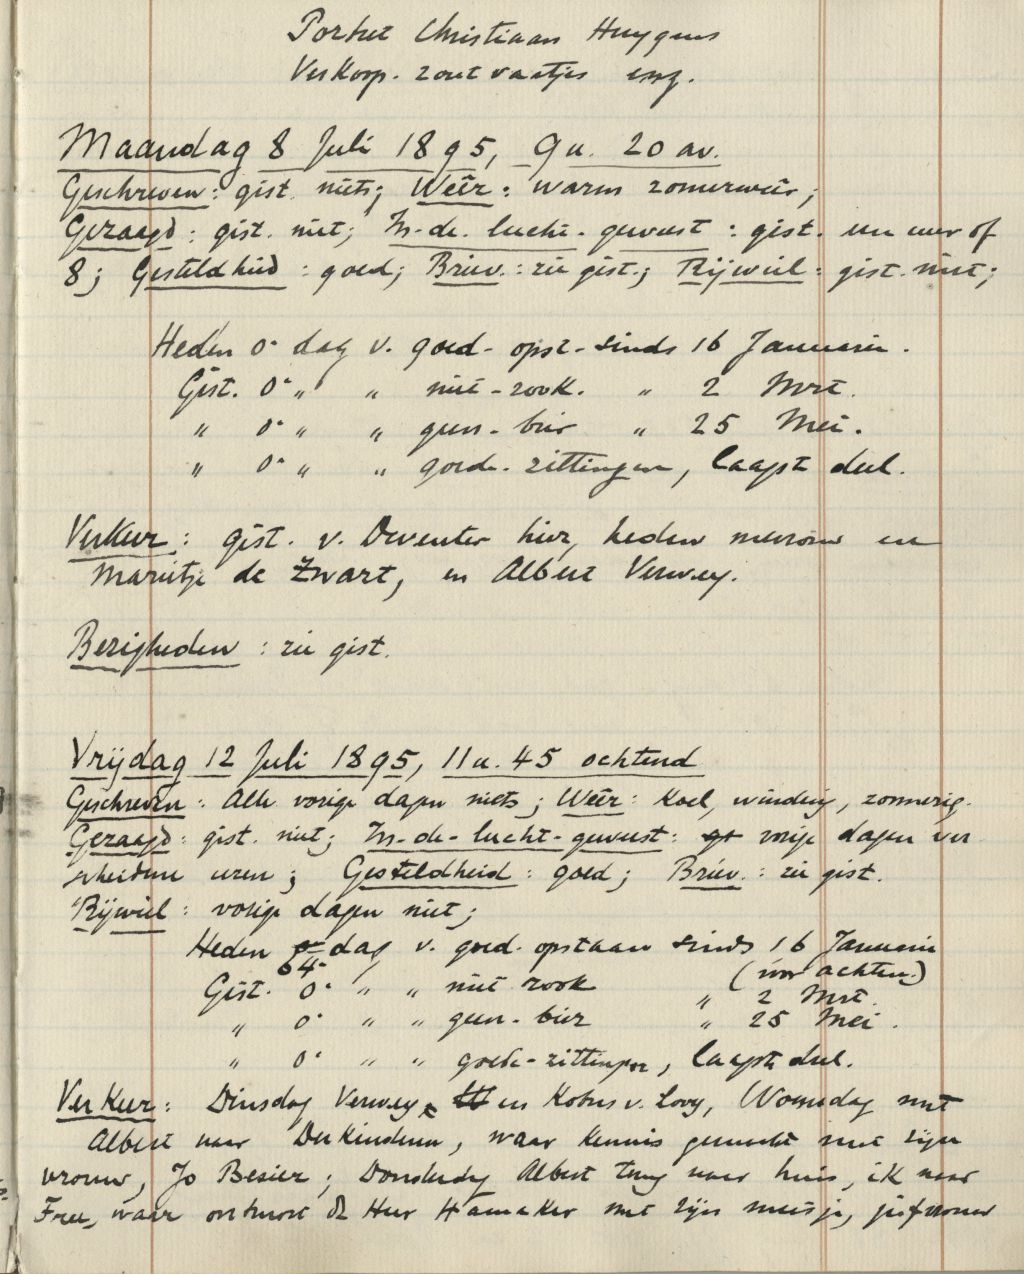 Portret Christiaan Huygens
Verkoop. zoutvaatjes enz.
Maandag 8 Juli 1895, 9 u. 20 av.
Geschreven: gist. niets; Wéér: warm zomerweêr;
Gezaagd: gist. niet; In-de-lucht-geweest: gist. een uur of
8; Gesteldheid: goed; Briev.: zie gist.; Rijwiel: gist. niet;
Heden 0e dag v. goed-opst-sinds 16 Januarie.
Gist. 0e " " niet-rook. " 2 Mrt.
" 0e " " geen-bier " 25 Mei.
" 0e " " goede-zittingen, laagst deel.
Verkeer: gist. v. Deventer hier, heden mevrouw en
Marietje de Zwart, en Albert Verwey.
Bezigheden: zie gist.
Vrijdag 12 Juli 1895, 11 u. 45 ochtend
Geschreven: Alle vorige dagen niets; Wéér: Koel, winderig, zonnerig.
Gezaagd: gist. niet; In-de-lucht-geweest: vorige dagen ver
scheidene uren; Gesteldheid: goed; Briev.: zie gist.
Rijwiel: vorige dagen niet;
Heden 64e dag v. goed-opstaan sinds 16 Januarie
(voor achten.)
Gist. 0e " " niet rook " 2 Mrt.
" 0e " " geen-bier " 25 Mei.
" 0e " " goede-zittingen, laagste deel.
Verkeer: Dinsdag Verwey en Kobus v. Looy, Woensdag met
Albert naar Der Kinderen, waar kennis gemaakt met zijn
vrouw, Jo Besier; Donderdag Albert terug naar huis, ik naar
Free, waar ontmoet de Heer Hamaker met zijn meisje, jufvrouw